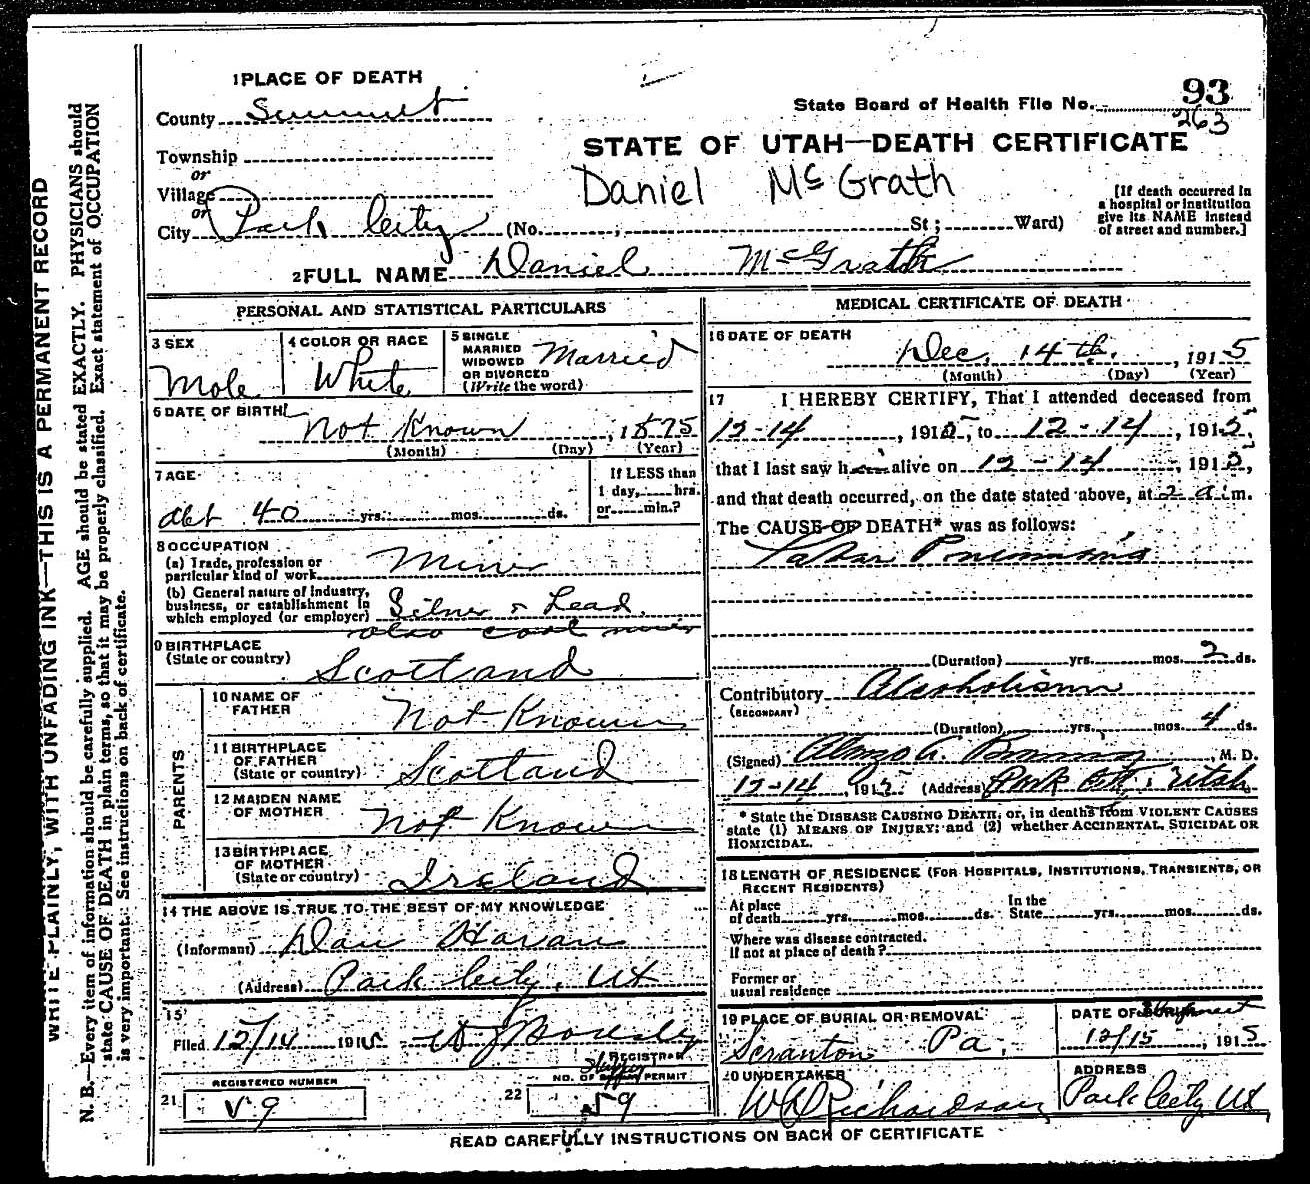 1 PLACE OF DEATH
County Summit
Township
or
Village
or
City Park City (No. ; St ; Ward)
State Board of Health File No. 93
263
STATE OF UTAH—DEATH CERTIFICATE
Daniel McGrath
[If death occurred in
a hospital or institution
give its NAME instead
of street and number.]
2 FULL NAME Daniel McGrath
PERSONAL AND STATISTICAL PARTICULARS
3 SEX
Male
4 COLOR OR RACE
White
5 SINGLE
MARRIED
WIDOWED
OR DIVORCED
(Write the word)
Married
6 DATE OF BIRTH
Not Known , 1875
(Month) (Day) (Year)
7 AGE
abt 40 yrs. mos. ds.
If LESS than
1 day, hrs.
or min.?
8 OCCUPATION
(a) Trade, profession or
particular kind of work Miner
(b) General nature of industry,
business, or establishment in
which employed (or employer) Silver & Lead.
also coal miner
9 BIRTHPLACE
(State or country) Scotland
PARENTS
10 NAME OF
FATHER Not Known
11 BIRTHPLACE
OF FATHER
(State or country) Scotland
12 MAIDEN NAME
OF MOTHER Not Known
13 BIRTHPLACE
OF MOTHER
(State or country) Ireland
14 THE ABOVE IS TRUE TO THE BEST OF MY KNOWLEDGE
(Informant) Dan Havan
(Address) Park City, Ut
15
Filed 12/14 1915
REGISTRAR
REGISTERED NUMBER
21 V 9
NO. OF PERMIT
22 59
MEDICAL CERTIFICATE OF DEATH
16 DATE OF DEATH
Dec. 14th. , 1915
(Month) (Day) (Year)
17 I HEREBY CERTIFY, That I attended deceased from
12-14 , 1915, to 12-14 , 1915,
that I last saw h alive on 12-14 , 1915,
and that death occurred, on the date stated above, at 2 a.m.
The CAUSE OF DEATH* was as follows:
Lobar Pneumonia
(Duration) yrs. mos. 2 ds.
Contributory Alcoholism
(SECONDARY)
(Duration) yrs. mos. 4 ds.
(Signed) Alonzo A. M. D.
12-14 , 1915 (Address) Park City, Utah.
* State the DISEASE CAUSING DEATH, or, in deaths from VIOLENT CAUSES
state (1) MEANS OF INJURY; and (2) whether ACCIDENTAL, SUICIDAL OR
HOMICIDAL.
18 LENGTH OF RESIDENCE (FOR HOSPITALS, INSTITUTIONS, TRANSIENTS, OR
RECENT RESIDENTS)
At place
of death yrs. mos. ds.
In the
State yrs. mos. ds.
Where was disease contracted.
If not at place of death?
Former or
usual residence
19 PLACE OF BURIAL OR REMOVAL
Scranton Pa.
DATE OF Shipment
12/15 , 1915
20 UNDERTAKER
W D Richardson
ADDRESS
Park City Ut
READ CAREFULLY INSTRUCTIONS ON BACK OF CERTIFICATE
WRITE PLAINLY, WITH UNFADING INK—THIS IS A PERMANENT RECORD
N. B.—Every item of information should be carefully supplied. AGE should be stated EXACTLY. PHYSICIANS should
state CAUSE OF DEATH in plain terms, so that it may be properly classified. Exact statement of OCCUPATION
is very important. See instructions on back of certificate.